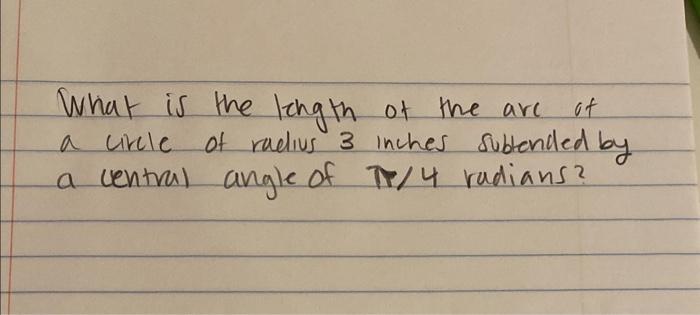 What is the length of the arc of
a circle of radius 3 inches subtended by
a central angle of π/4 radians?